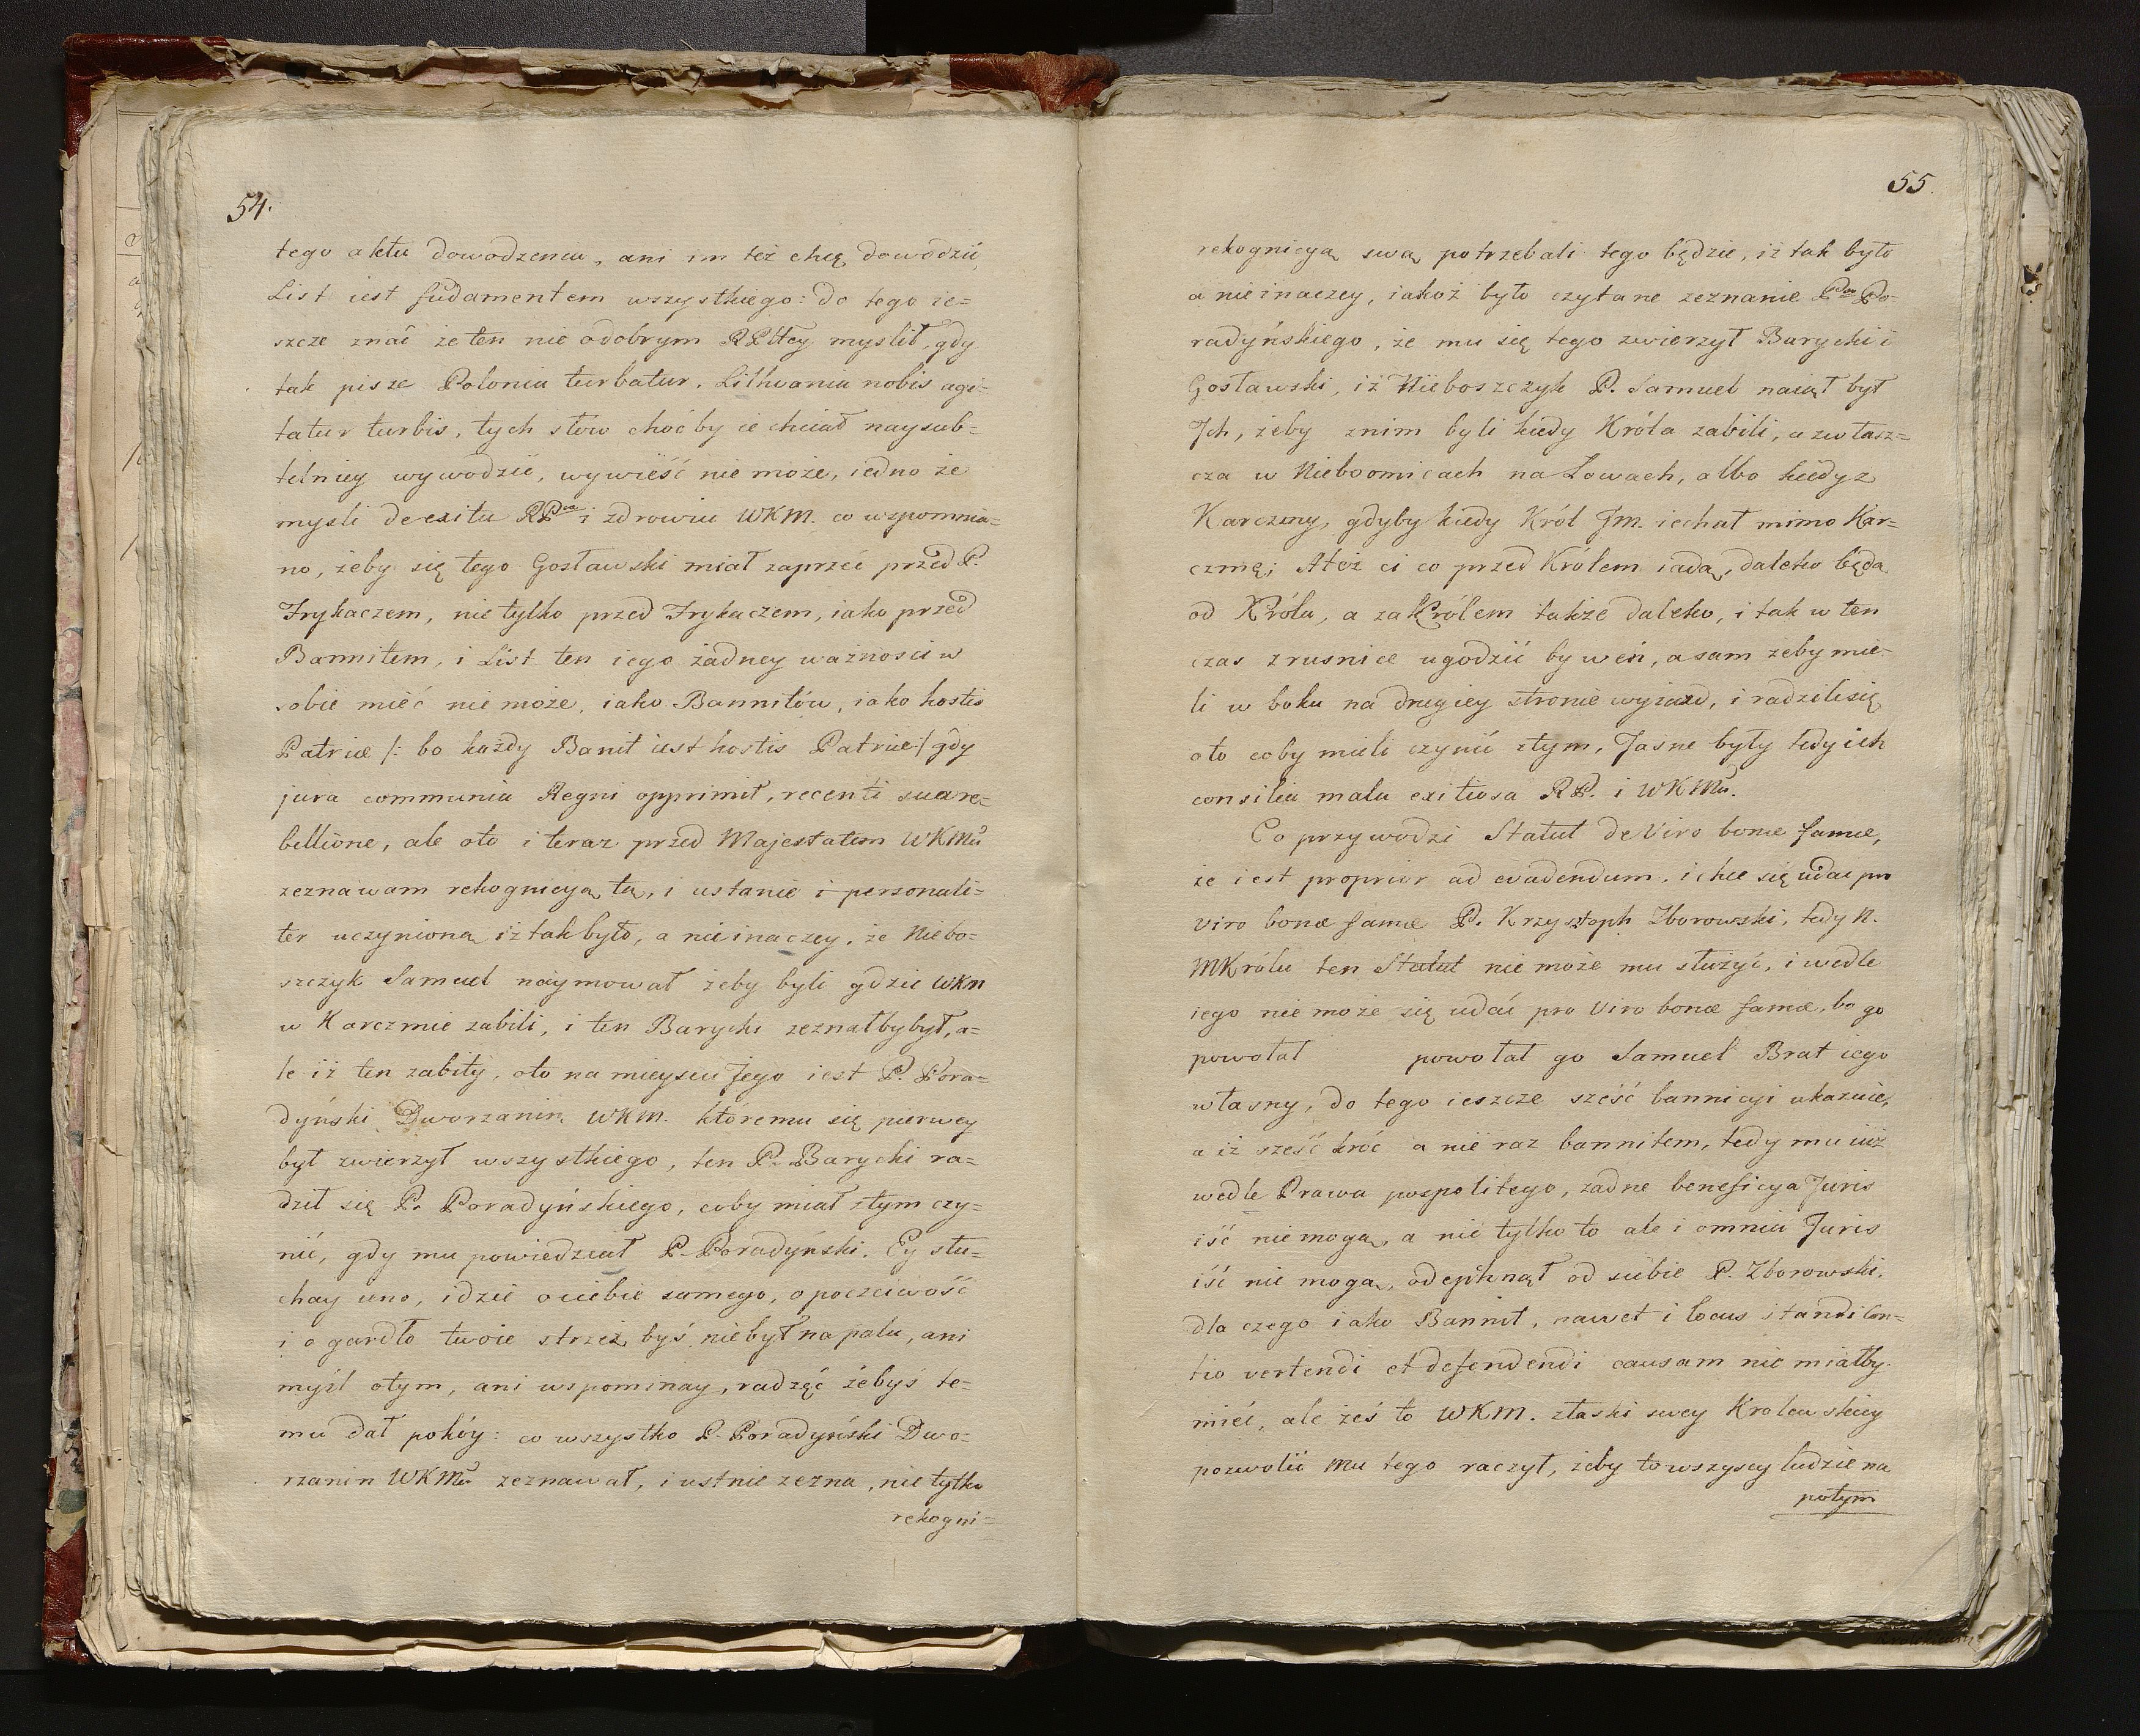 54.
tego aktu dowodzenia, ani im też chcę dowodzić,
List iest fudamentem wszystkiego: do tego ie=
szcze znać że ten nie odobrym RPltey myslił, gdy
tak pisze Polonia turbatur. Lithvania nobis agi=
tatur turbis, tych słów choćby ie chciał naysub=
telniey wywodzić, wywieść nie może, iedno że
mysli de exitu RPta i zdrowiu WKM. co wspomnia=
no, żeby się tego Gosławski miał zaprzeć przed P.
Frykaczem, nie tylko przed Frykaczem, iako przed
Bannitem, i List ten iego żadney ważnosci w
sobie mieć nie może, iako Bannitów, iako hostis
Patriæ /: bo każdy Banit iest hostis Patriæ :/ gdy
jura communia Regni opprimit, recenti sua re=
bellione, ale oto i teraz przed Majestatem WKMci
zeznawam rekognicyą tą, i ustanie i personali=
ter uczynioną iż tak było, a nie inaczey, że Niebo=
szczyk Samuel naymował żeby byli gdzie WKM
w Karczmie zabili, i ten Barycki zeznałby był, a=
le iż ten zabity, oto na mieyscu Jego iest P. Pora=
dyński Dworzanin WKM. któremu się pierwey
był zwierzył wszystkiego, ten P. Barycki ra=
dził się P. Poradyńskiego, coby miał ztym czy=
nić, gdy mu powiedział P. Poradyński. Ey słu=
chay uno, idzie o ciebie samego, o poczciwość
i o gardło twoie strzeż byś nie był na palu, ani
myśl otym, ani wspominay, radzęć żebyś te=
mu dał pokóy: co wszystko P. Poradyński Dwo=
rzanin WKMci zeznawał, i ustnie zezna, nie tylko
rekogni=
55.
rekognicyą swą potrzebali tego będzie, iż tak było
a nie inaczey, iakoż było czytane zeznanie Pana Po=
radyńskiego, że mu się tego zwierzył Barycki i
Gosławski, iż Nieboszczyk P. Samuel naiął był
Ich, żeby znim byli kiedy Króla zabili, a zwłasz=
cza w Nieboomicach na Łowach, albo kiedy z
Karczmy, gdyby kiedy Król Jm. iechał mimo Kar=
czmę; Atoż ci co przed Królem iadą, daleko będą
od Króla, a za Królem także daleko, i tak w ten
czas z rusnice ugodzić by weń, a sam żeby mie=
li w boku na drugiey stronie wyiazd, i radzili się
oto coby mieli czynić ztym, Jasne były tedy ich
consilia mala exitiosa RP. i WKMci.
Co przywodzi Statut de Viro bonæ famæ,
że iest proprior ad evadendum. i chce się udać pro
viro bonæ famæ P. Krzysztoph Zborowski, tedy N.
MKrólu ten Statut nie może mu służyć, i wedle
iego nie może się udać pro Viro bonæ famæ, bo go
powołał powołał go Samuel Brat iego
własny, do tego ieszcze sześć bannicyi ukazuie,
a iż sześć króć a nie raz bannitem, tedy mu iuż
wedle Prawa pospolitego, żadne beneficya Juris
iść nie mogą, a nie tylko to ale i omnia Juris
iść nie mogą, odepchnął od siebie P. Zborowski.
dla czego iako Bannit, nawet i locus standi Con=
tro vertendi et defendendi causam nie miałby
mieć, ale żeś to WKM. złaski swey Krolewskiey
pozwolić mu tego raczył, żeby to wszyscy ludzie na
potym